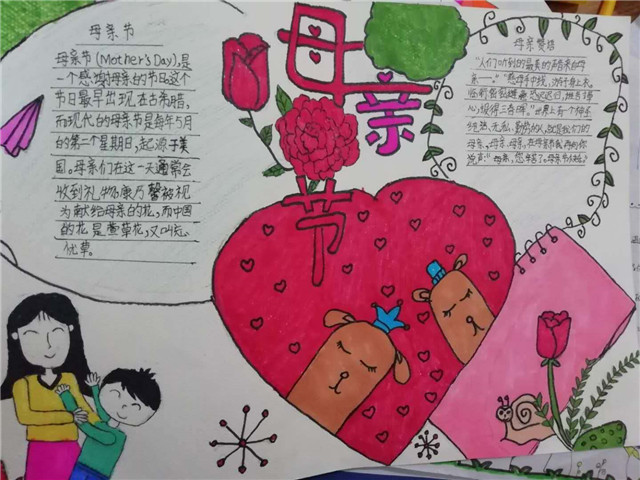 母亲节
母亲节
母亲节(Mother's Day),是
一个感谢母亲的节日这个
节日最早出现在古希腊,
而现代的母亲节是每年5月
的第二个星期日,起源于美
国。母亲们在这一天通常会
收到礼物康乃馨被视
为献给母亲的花,而中国
的花是萱草花,又叫忘
忧草。
母亲赞语
"人们口中的最美的声音来自母
亲——。""慈母手中线,游子身上衣。
临行密密缝,意恐迟迟归。谁言寸草
心,报得三春晖。"
母亲,母亲
声。"母亲,您辛苦了。母亲节快乐!